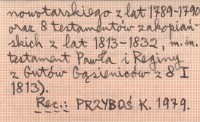 nowotarskiego z lat 1789-1790
oraz 8 testamentów zakopiań-
skich z lat 1813-1832, m.in.
testament Pawła i Reginy
z Gutów Gąsieniców z 8 I
1813).
Rec.: PRZYBOŚ K. 1979.